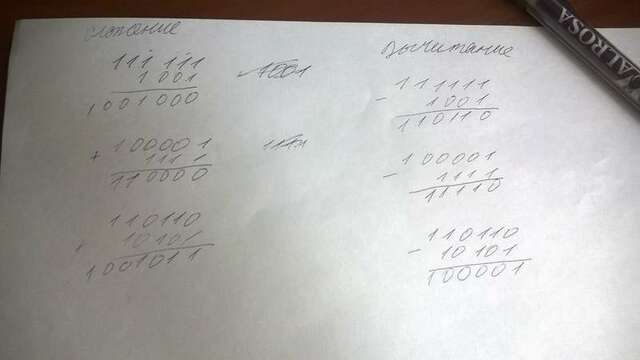 сложение
111111
1001
1001000
1001
+ 100001
1111
110000
110110
+ 10101
1001011
Вычитание
111111
- 1001
110110
100001
- 1111
11110
110110
- 10101
100001
ALROSA